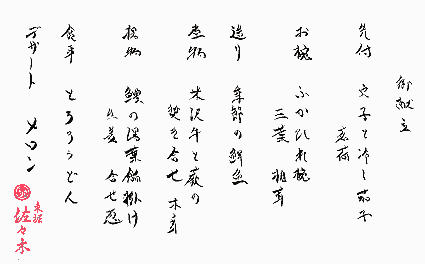 御献立
先付 穴子と冷し茄子
茗荷
お椀 ふかひれ椀
三葉 粗茸
造り 季節の鮮魚
煮物 米沢牛と蕨の
焚き合せ 木の芽
揚物 鰻の湯葉餡掛け
山葵 合せ葱
食事 とろろうどん
デザート メロン
東郷
佐々木